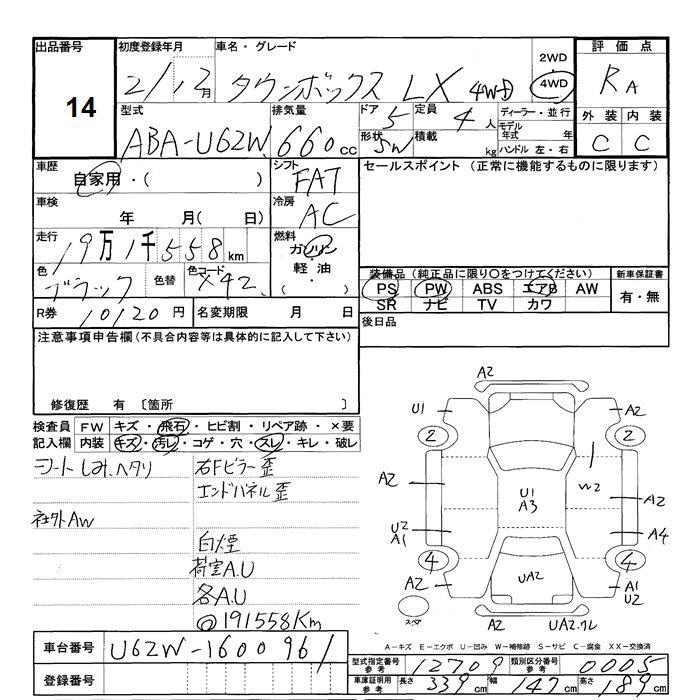 出品番号
14
初度登録年月
2/12月
車名・グレード
タウンボックス LX 4WD
2WD
・
4WD
評価点
RA
型式
ABA-U62W
排気量
660cc
ドア
5
形状
5W
定員
4人
積載
kg
ディーラー・並行
モデル年式 年
ハンドル 左・右
外装 内装
C C
車歴
自家用・( )
シフト
FAT
セールスポイント (正常に機能するものに限ります)
車検
年 月( 日)
冷房
AC
走行
19万1千558km
燃料
ガソリン
軽油
( ・ )
色
ブラック
色替
色コード
X42
装備品 (純正品に限り○をつけてください)
PS PW ABS エアB AW
SR ナビ TV カワ
新車保証書
有・無
R券 10120円
名変期限 月 日
後日品
注意事項申告欄(不具合内容等は具体的に記入して下さい)
修復歴 有 〔箇所 〕
検査員記入欄
FW キズ・飛石・ヒビ割・リペア跡・×要
内装 キズ・汚レ・コゲ・穴・スレ・キレ・破レ
シートしみ、ヘタリ
社外AW
右Fピラー歪
エンドパネル歪
白煙
荷室A.U
各A.U
@191558Km
A2
U1
A2
2
2
A2
W2
U1
A3
A2
U2
A1
A4
4
4
A2
UA2
A1
U2
スペア
A2
UA2.クレ
車台番号
U62W-1600961
登録番号
A-キズ E-エクボ U-凹み W-補修跡 S-サビ C-腐食 XX-交換済
型式指定番号 参考
12709
類別区分番号 参考
0005
車庫証明用 参考
長さ 339cm
幅 147cm
高さ 189cm